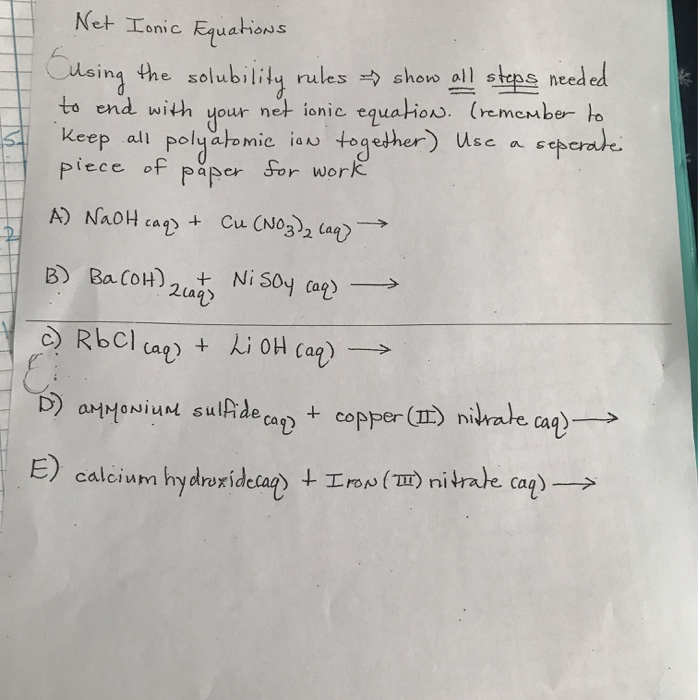 Net Ionic Equations
Using the solubility rules ⇒ show all steps needed
to end with your net ionic equation. (remember to
keep all polyatomic ion together) Use a seperate
piece of paper for work
A) NaOH (aq) + Cu (NO3)2 (aq) →
B) Ba(OH)2(aq) + NiSO4 (aq) →
C) RbCl (aq) + LiOH (aq) →
D) ammonium sulfide (aq) + copper (II) nitrate (aq) →
E) calcium hydroxide(aq) + Iron (III) nitrate (aq) →